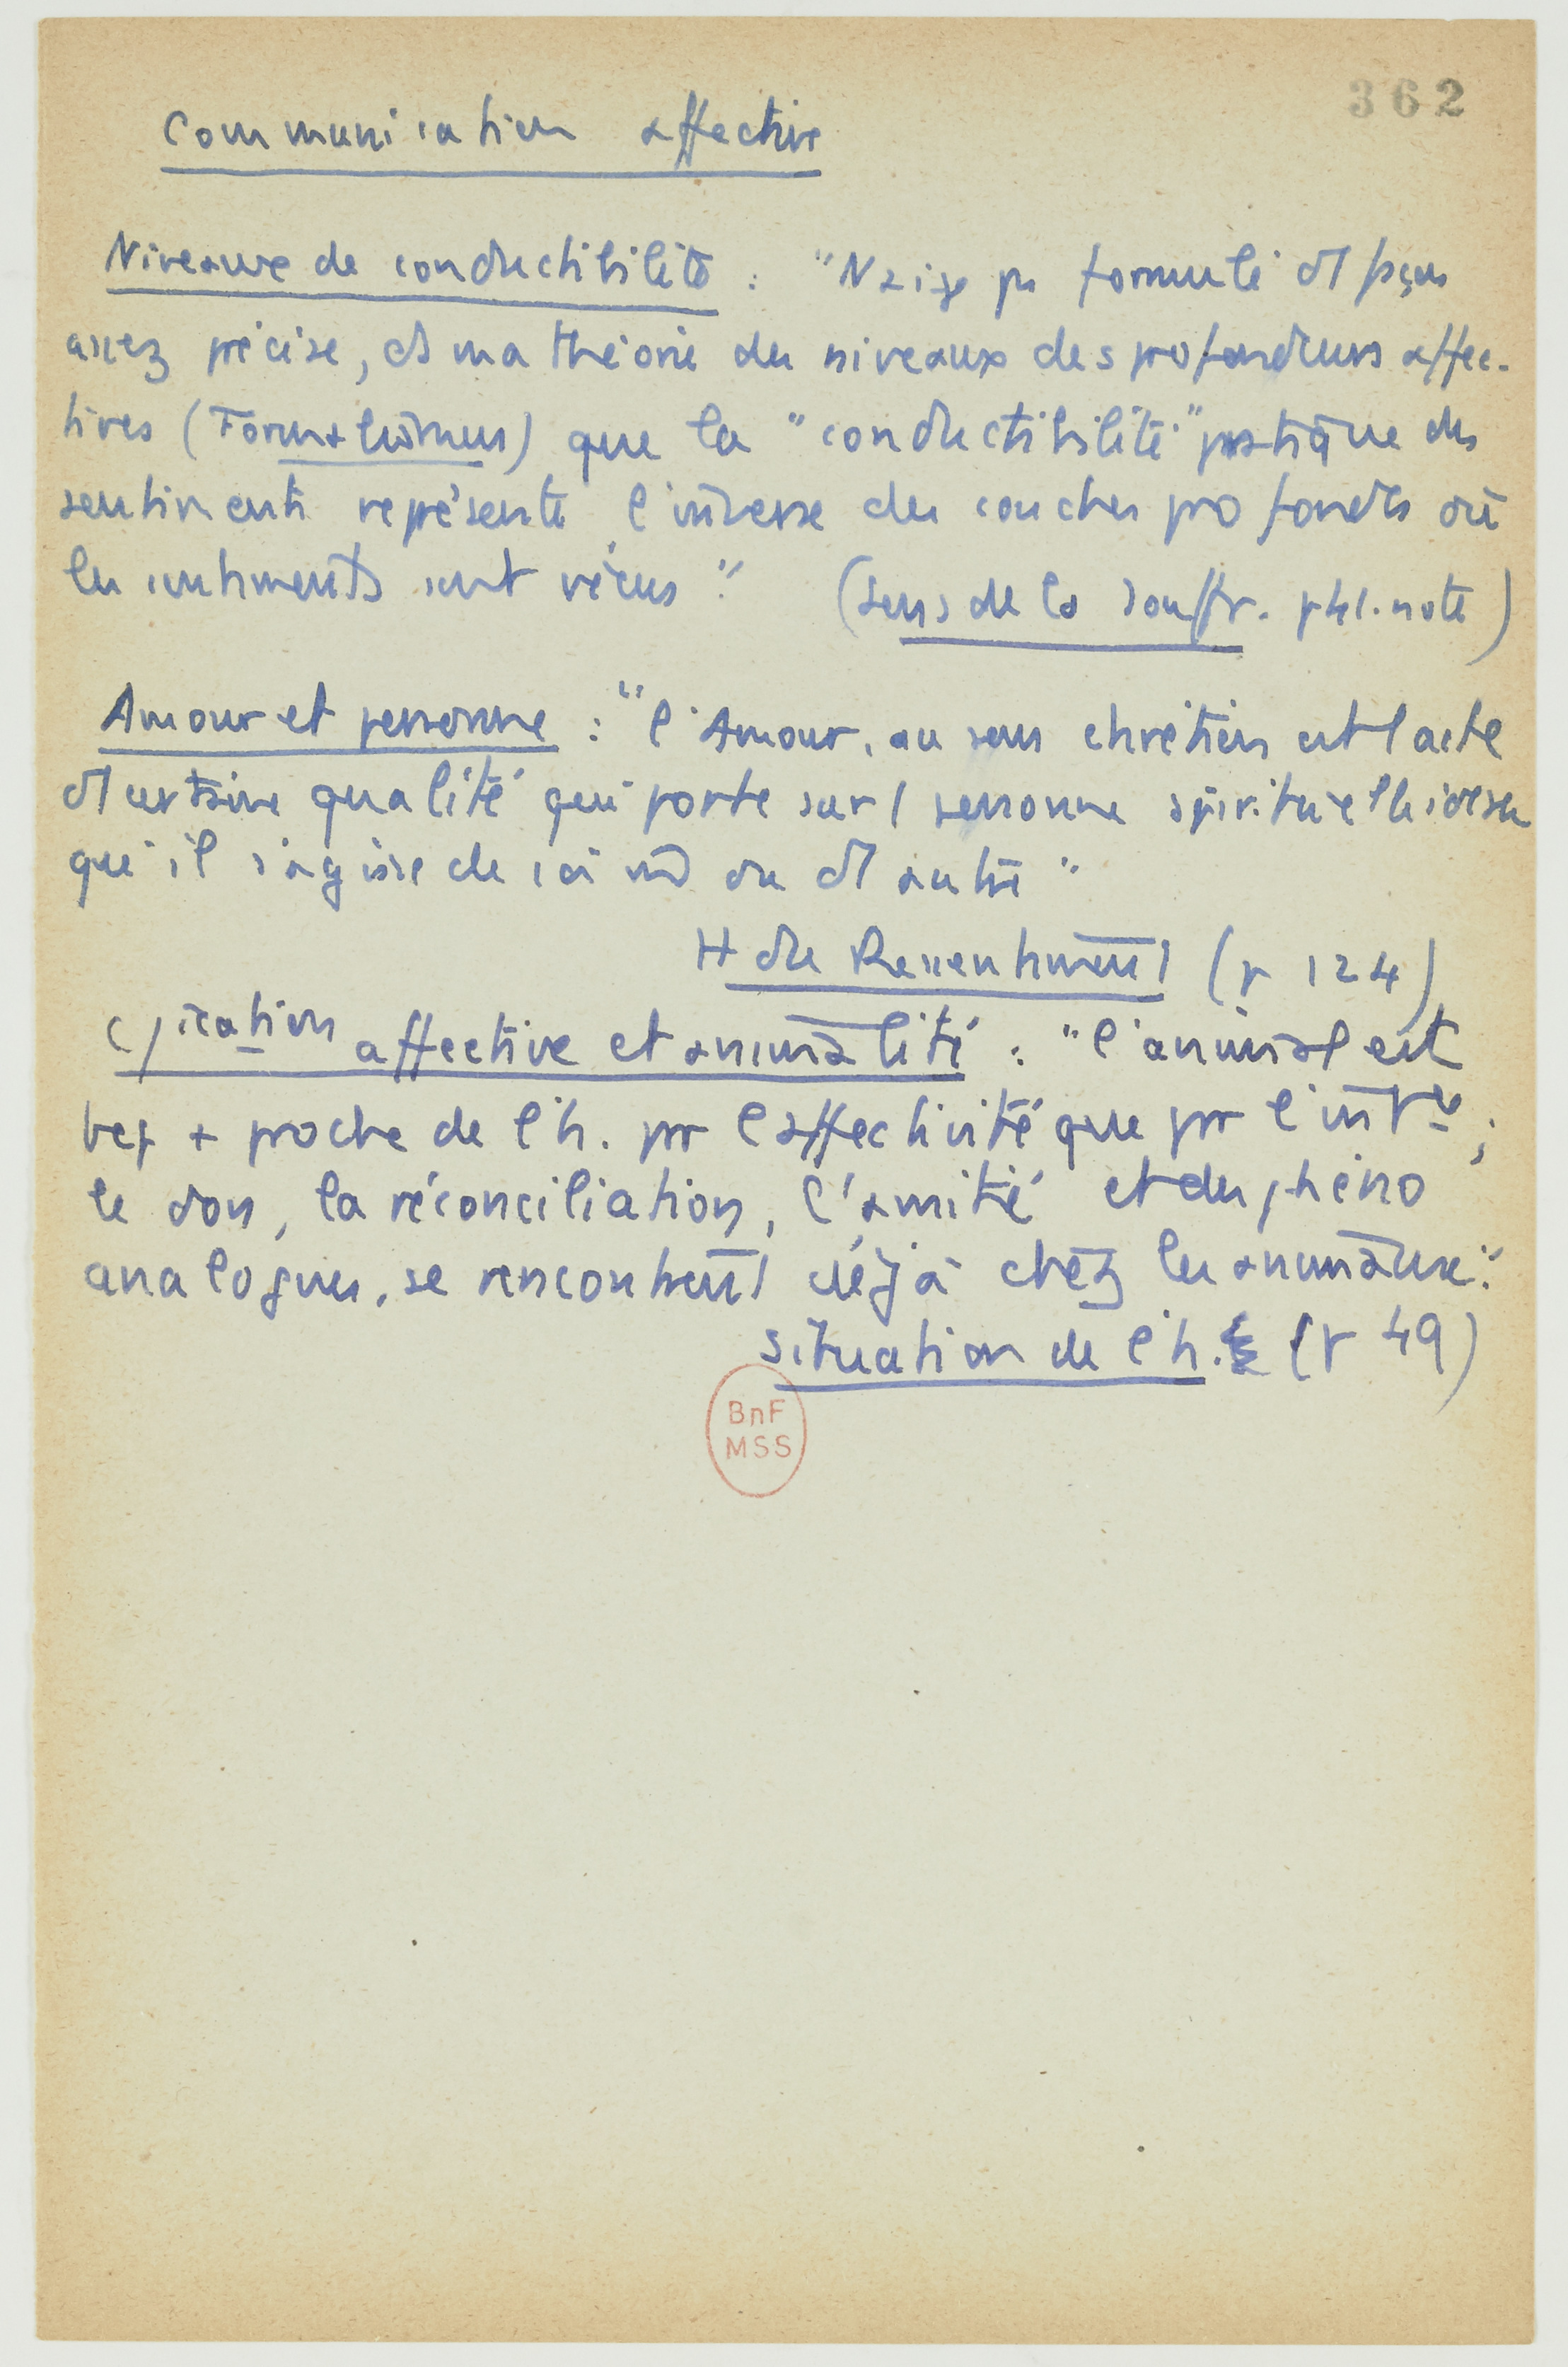 362
Communication affective
Niveaux de conductibilité : "N'ai-je pas formulé d'1 façon
assez précise, ds ma théorie des niveaux des profondeurs affec-
tives (Formalismus) que la "conductibilité" pratique des
sentiments représente l'inverse des couches profondes où
les sentiments sont vécus". (Sens de la Souffr. p41. note)
Amour et personne : "l'Amour, au sens chrétien est 1 acte
d'1 certaine qualité qui porte sur 1 personne spirituelle idéale
qu'il s'agisse de soi m̄ ou d'1 autre"
H du Ressentiment (p 124)
C/ication affective et animalité : "l'animal est
bcp + proche de l'h. pr l'affectivité que pr l'int ce ;
le don, la réconciliation, l'amitié et des phéno
analogues, se rencontrent déjà chez les animaux".
Situation de l'h. (p 49)
BnF
MSS